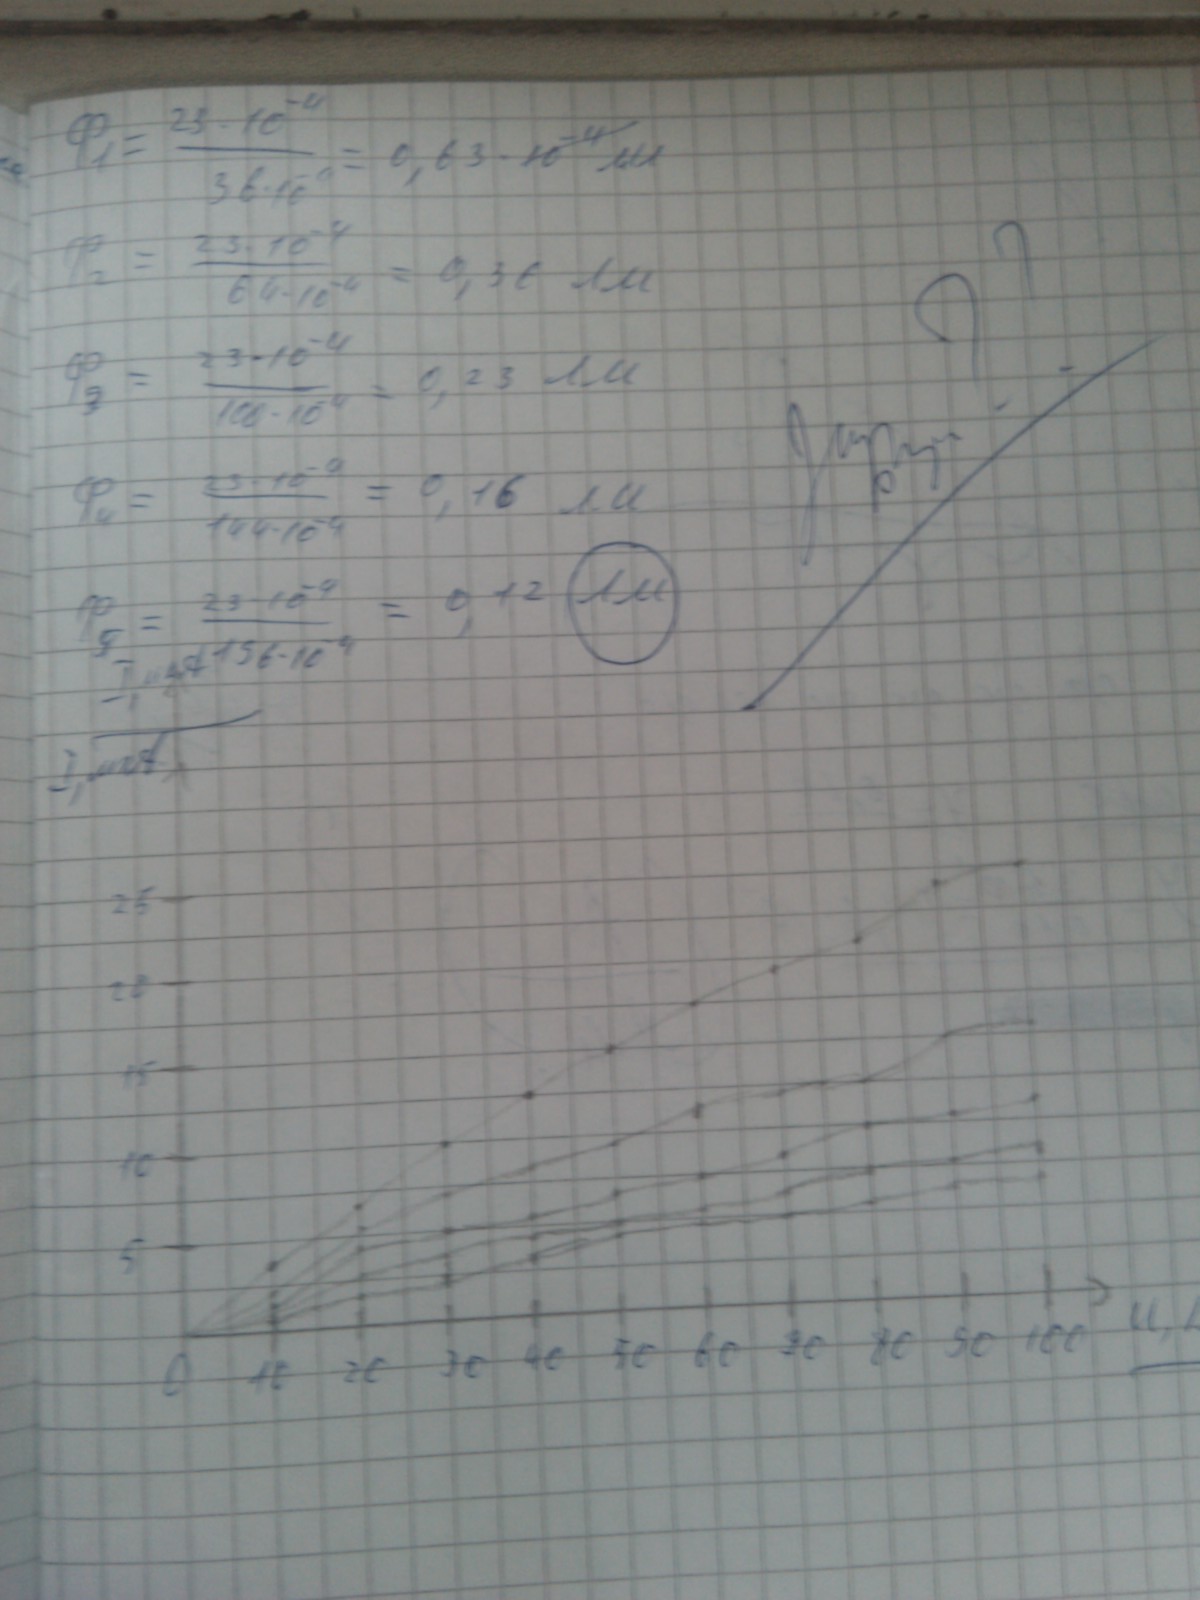 Ф₁ = 23·10⁻⁴ / 36·10⁻⁴ = 0,63·10⁻⁴ лм
Ф₂ = 23·10⁻⁴ / 64·10⁻⁴ = 0,36 лм
Ф₃ = 23·10⁻⁴ / 100·10⁻⁴ = 0,23 лм
Ф₄ = 23·10⁻⁴ / 144·10⁻⁴ = 0,16 лм
Ф₅ = 23·10⁻⁴ / 196·10⁻⁴ = 0,12 лм
I, мкА
I, мкА
25
20
15
10
5
0 10 20 30 40 50 60 70 80 90 100 U,